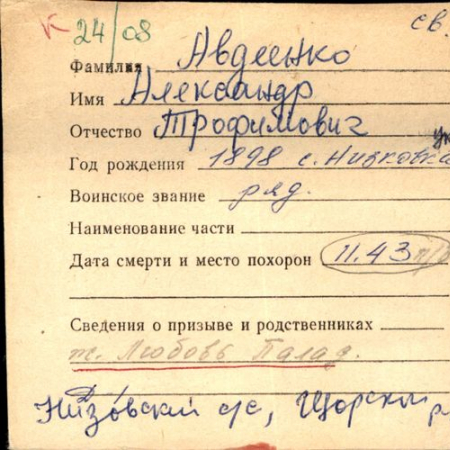 К 24/08 св.
Фамилия Авдеенко
Имя Александр
Отчество Трофимович
Год рождения 1898 с. Низковка
Воинское звание ряд.
Наименование части
Дата смерти и место похорон 11.43 п/б
Сведения о призыве и родственниках
ж. Любовь Палад.
Низовский с/с, Щорский р